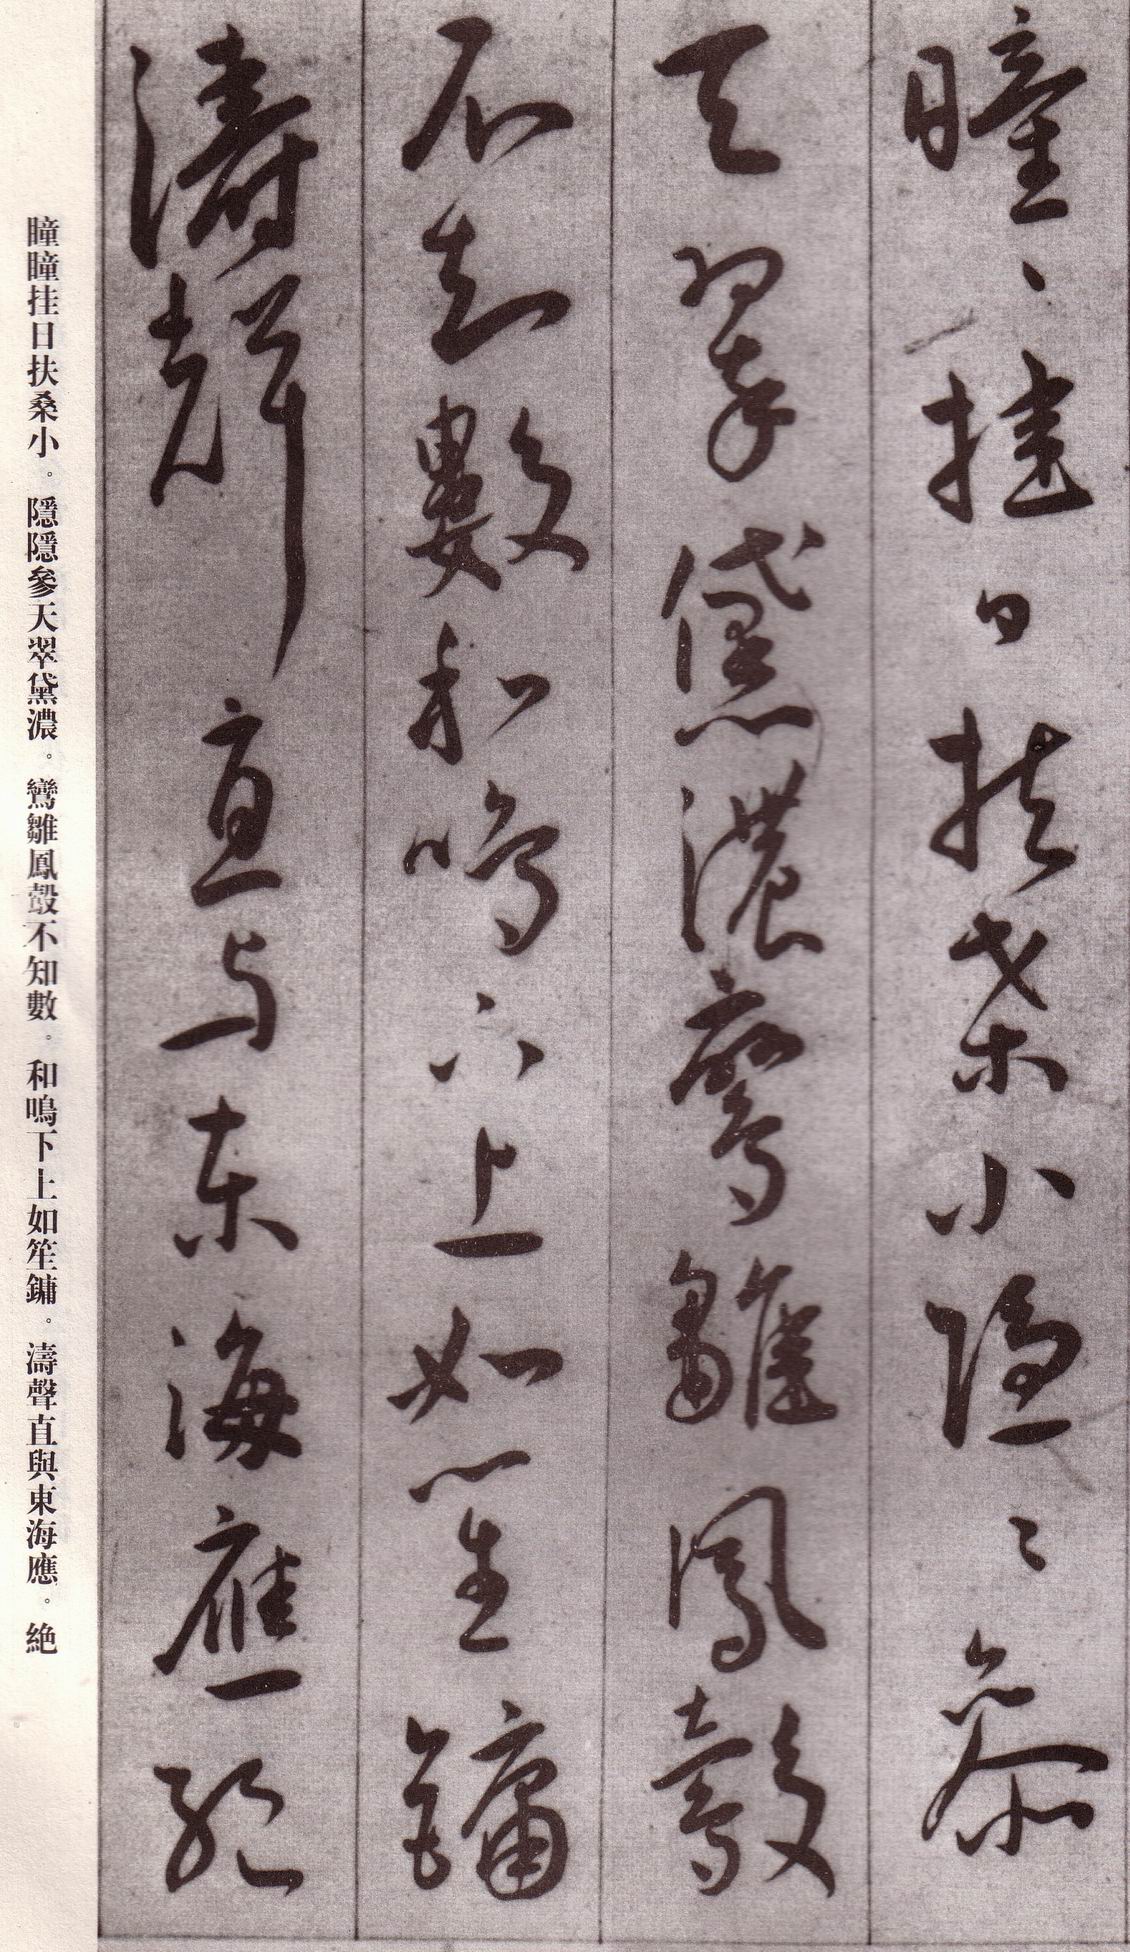 瞳〻挂日扶桑小隱〻參
天翠黛濃鸞雛鳳鷇
不知數和鳴下上如笙鏞
濤聲直与東海應絕
瞳瞳挂日扶桑小。隱隱參天翠黛濃。鸞雛鳳鷇不知數。和鳴下上如笙鏞。濤聲直與東海應。絕